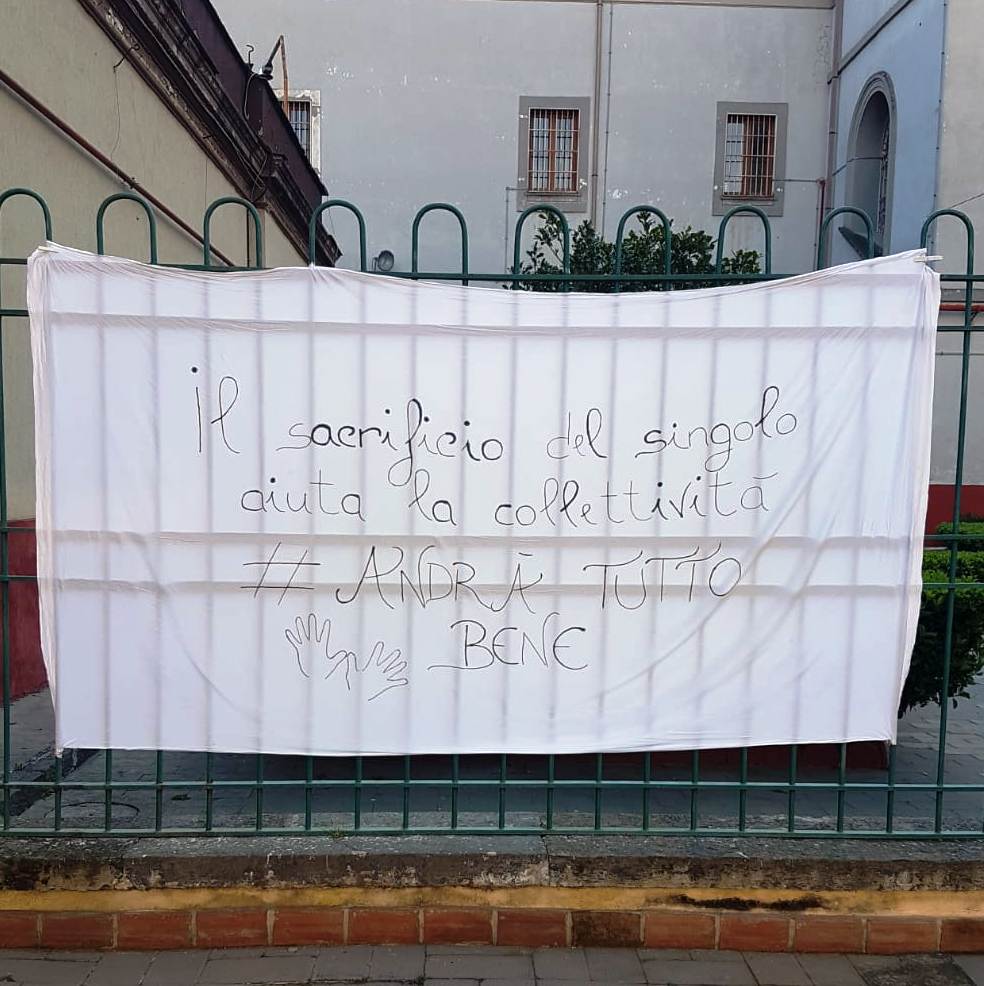 il sacrificio del singolo
aiuta la collettività
# ANDRÀ TUTTO
BENE